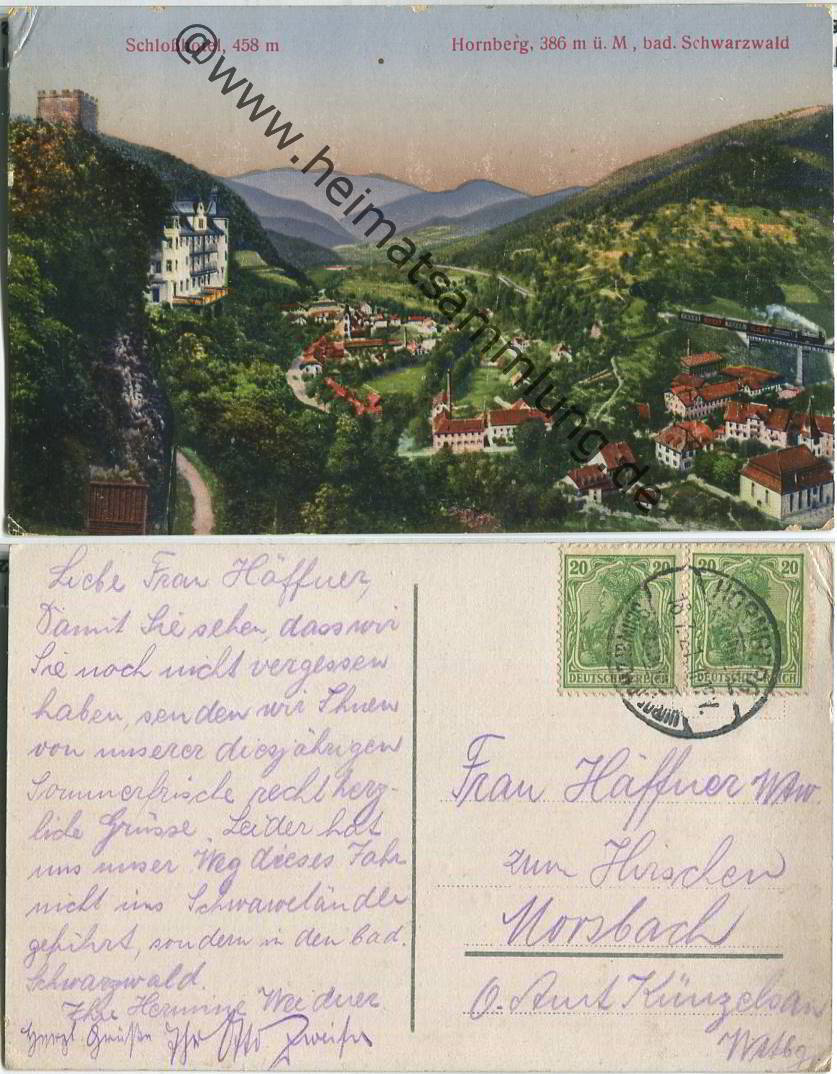 Schloßhotel, 458 m
Hornberg, 386 m ü. M, bad. Schwarzwald
@www.heimatsammlung.de
Liebe Frau Häffner,
Damit Sie sehen, dass wir
Sie noch nicht vergessen
haben, senden wir Ihnen
von unserer diesjährigen
Sommerfrische recht herz-
liche Grüsse. Leider hat
uns unser Weg dieses Jahr
nicht ins Schwabeländle
geführt, sondern in den bad.
Schwarzwald.
Ihre Hermine Weidner
Herzl. Grüße Ihr Otto
20 20 20 20
DEUTSCHES REICH DEUTSCHES REICH
HORNBERG
Frau Häffner Wtw.
zum Hirschen
Morsbach
O. Amt Künzelsau
Wttbg.